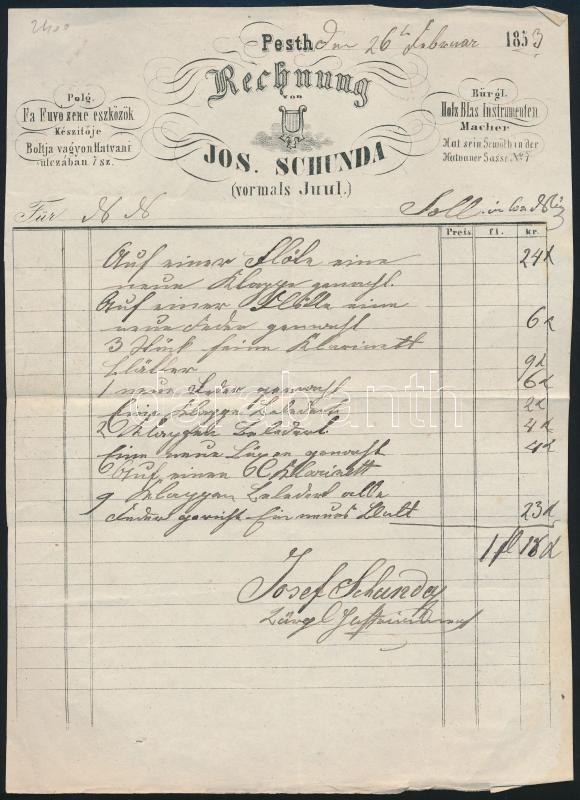 2400
Pesth, den 26ten Februar 1853
Rechnung
von
JOS. SCHUNDA
(vormals Juul.)
Polg.
Fa Fuvo zene eszközök
Készitője
Boltja vagyon Hatvani
utczában 7 sz.
Bürgl.
Holz Blas Instrumenten
Macher
Hat sein Gewölb in der
Hatvaner Gasse No. 7
Für N N Soll
Preis fl. kr.
Auf einer Flöte eine
neue Klappe gemacht. 24 x
Auf einer Flöte eine
neue Feder gemacht 6 x
3 Stück feine Klarinett
Blätter 9 x
1 neue Feder gemacht 6 x
Eine Klappe Beledert 2 x
2 Klappen Beledert. 4 x
Eine neue gemacht 4 x
Auf einen C Klarinett
9 Klappen Beledert alle
Feder gericht Ein neues Blatt 23 x
1 fl 18 x
Josef Schunda
bürgl
darabanth